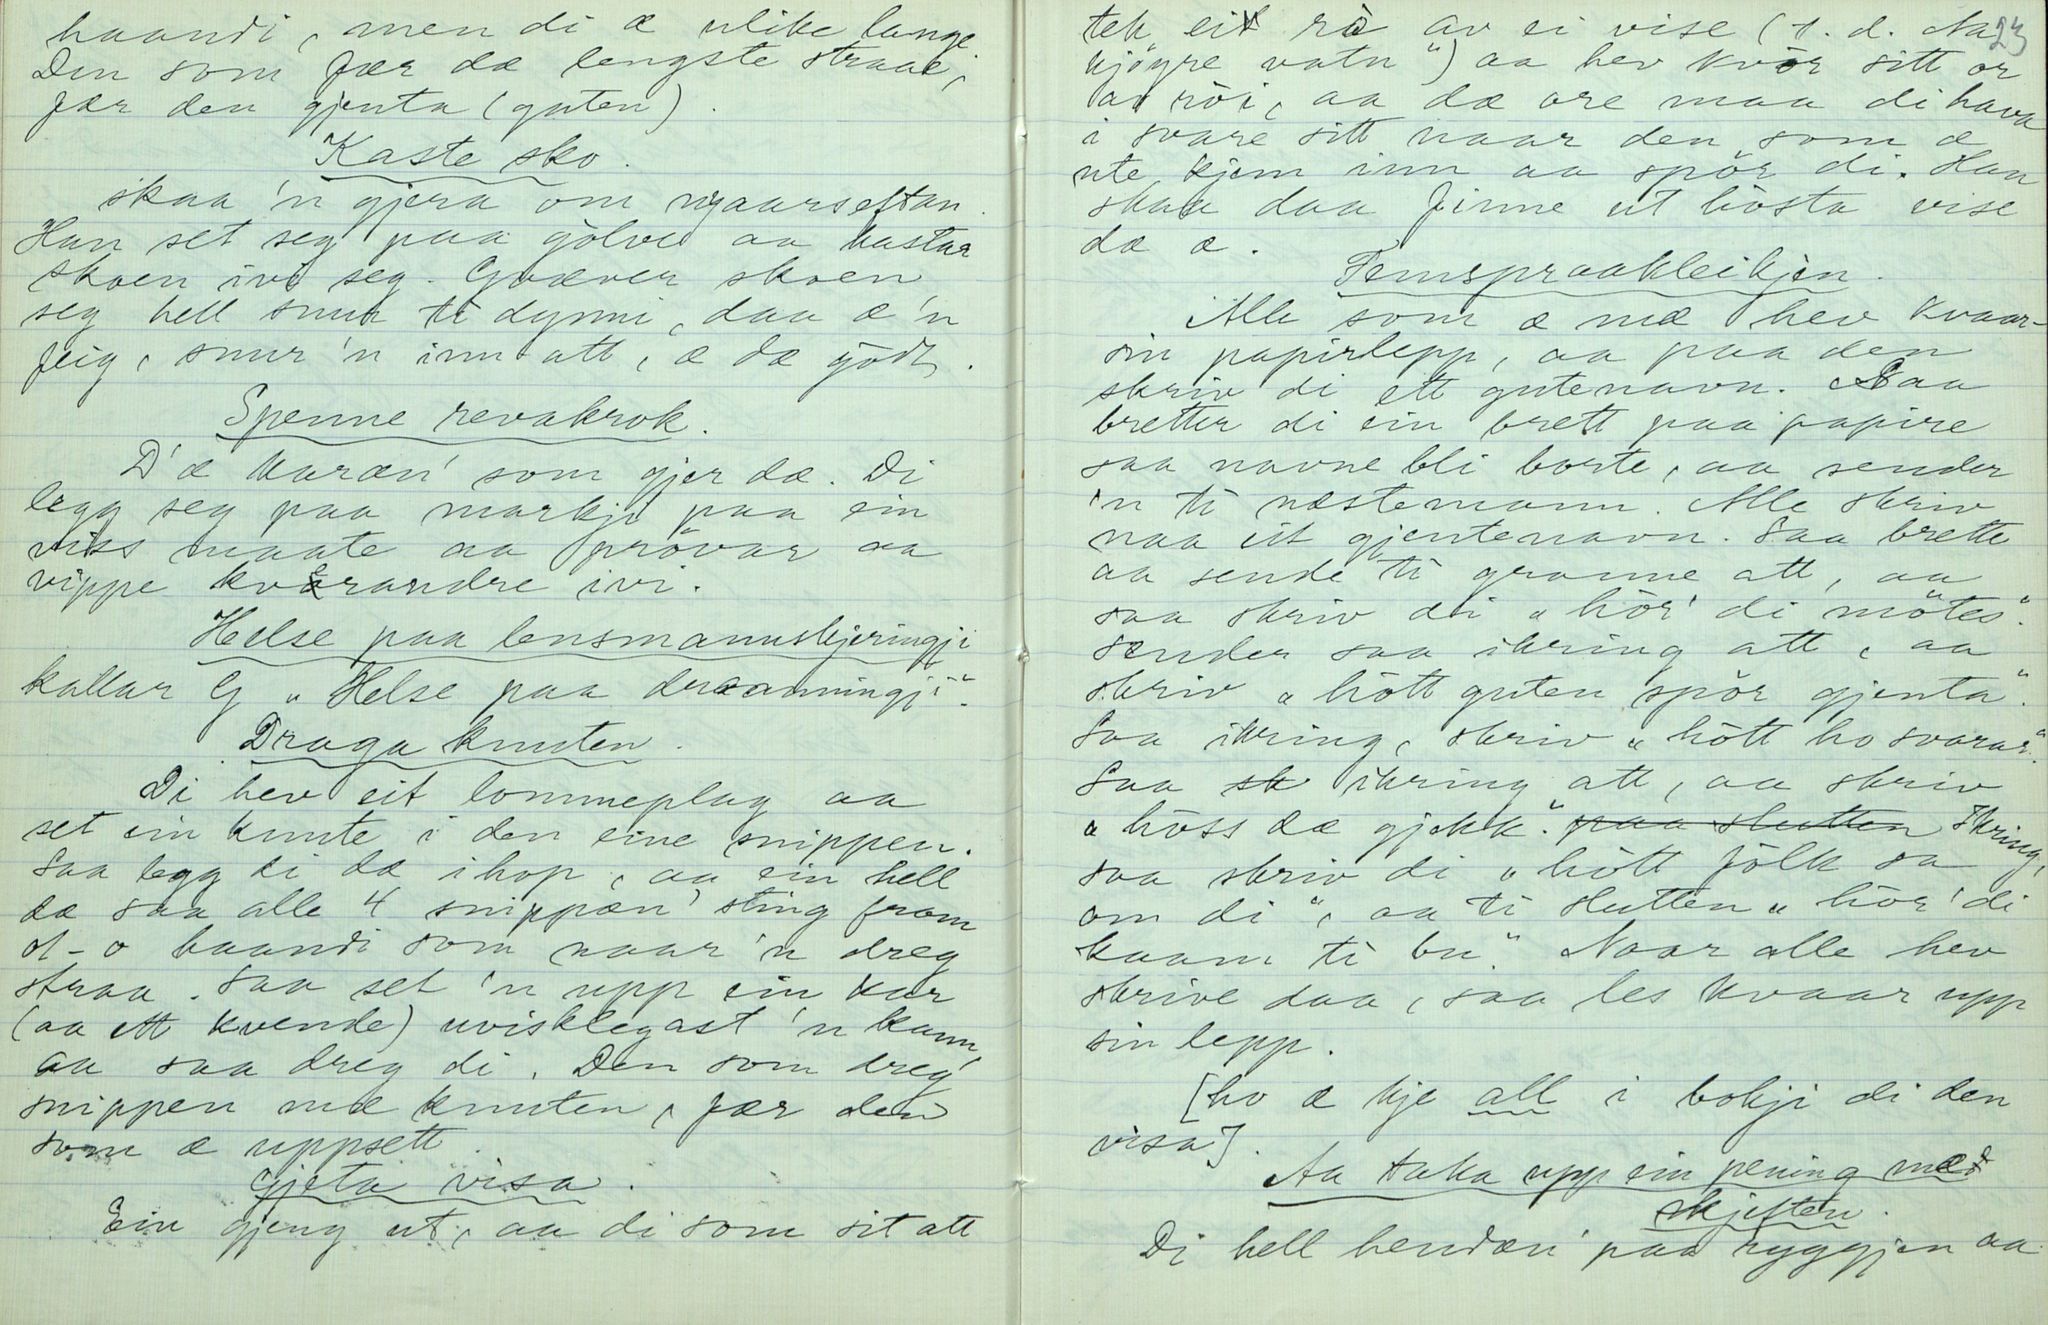 haandi, men di æ ulike lange
Den som fær dæ lengste straae,
fær den gjenta (guten).
Kaste sko.
skaa 'n gjera om nyaarseftan.
Han set seg paa gölve aa kastar
skoen ivi seg. Gjæver skoen
seg hell snur ti dynni, daa æ 'n
feig, snur 'n inn att, æ dæ godt.
Spenne revakrok.
D'æ karæn' som gjer dæ. Di
legg seg paa markji paa ein
viss maate aa prövar aa
vippe kvòrandre ivi.
Helse paa lensmannskjeringji
kallar eg „Helse paa draanningji".
Draga knuten.
Di hev eit lommeplag aa
set ein knute i den eine snippen.
Saa legg di dæ ihop, aa ein hell
dæ saa alle 4 snippæn' sting fram
ol-o haandi som naar 'n dreg
straa. Saa set 'n upp ein kar
(aa ett kvende) uvisklegast 'n kann,
aa saa dreg di. Den som dreg
snippen mæ knuten, fær den
som æ uppsett.
Gjeta visa.
Ein gjeng ut, aa di som sit att
23
tek eit rò av ei vise (t. d. Na
kjögre vatn") aa hev kvòr sitt or
av ròi, aa dæ ore maa di hava
i svare sitt naar den som æ
ute kjem inn aa spör di. Han
skaa daa finne ut hòsta vise
dæ æ.
Femspraakleikjen.
Alle som æ mæ hev kvaar-
sin papirlepp, aa paa den
skriv di ett gutenavn. Saa
bretter di ein brett paa papire
saa navne bli borte, aa sender
'n ti næstemann. Alle skriv
naa eit gjentenavn. Saa brette
aa sende ti granne att, aa
saa skriv di „hòr' di mötes".
Sender saa ikring att, aa
skriv „hòtt guten spör gjenta".
Saa ikring, skriv „hòtt ho svarar".
Saa sk ikring att, aa skriv
„hòss dæ gjekk". paa slutten Ikring,
saa skriv di „hòtt fòlk sa
om di", aa ti slutten „hòr' di
kaam ti bu." Naar alle hev
skrive daa, saa les kvaar upp
sin lepp.
[ho æ kje all i bokji di den
visa].
Aa taka upp ein pening mæd
skjeften.
Di hell hendæn' paa ryggjen aa